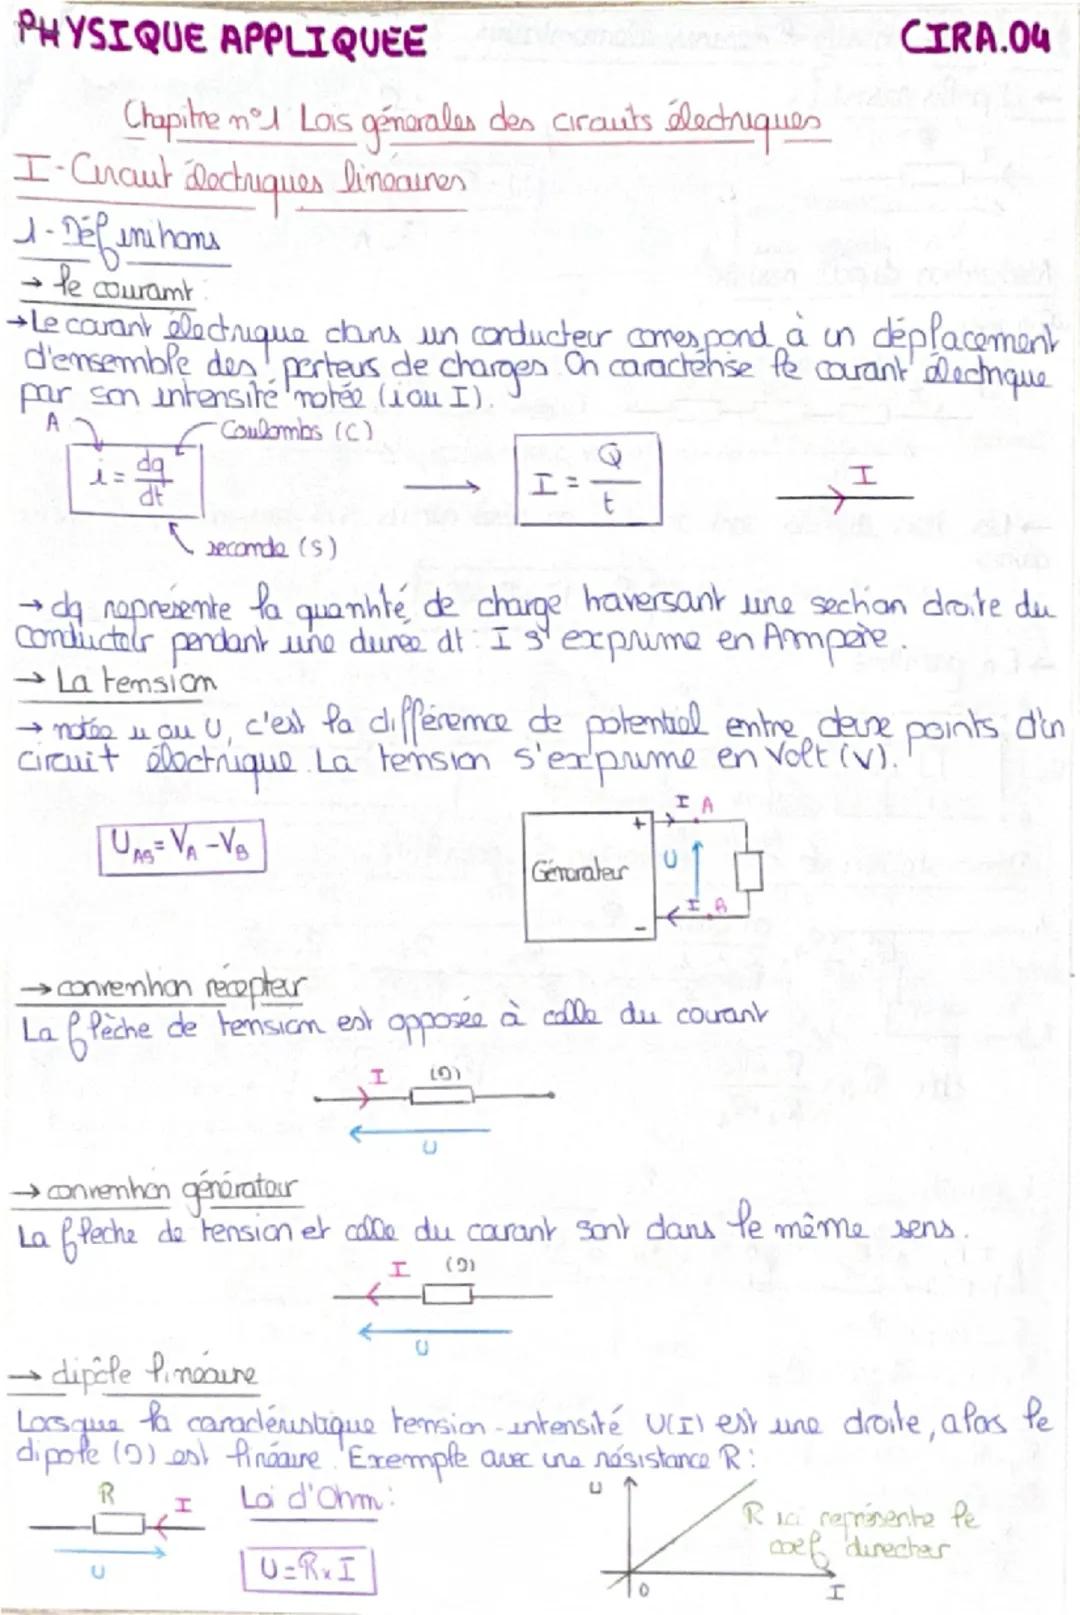 PHYSIQUE APPLIQUEE CIRA.04
Chapitre n°1 Lois générales des circuits électriques
I-Circuit électriques lineaires
1-Définitions
→ le courant :
→Le courant électrique dans un conducteur correspond à un déplacement
d'ensemble des porteurs de charges. On caractérise le courant électrique
par son intensité notée (i ou I).
A Coulombs (C)
i = dq/dt → I = Q/t I
seconde (s)
→ dq représente la quantité de charge traversant une section droite du
conducteur pendant une durée dt. I s'exprime en Ampère.
→ La tension
→ notée u ou U, c'est la différence de potentiel entre deux points d'un
circuit électrique. La tension s'exprime en Volt (V).
I A
+
U_AB = V_A - V_B Générateur U
I B
-
→ convention récepteur
La flèche de tension est opposée à celle du courant
I (D)
U
→ convention générateur
La flèche de tension et celle du courant sont dans le même sens.
I (D)
U
→ dipôle linéaire
Lorsque la caractéristique tension-intensité U(I) est une droite, alors le
dipole (D) est linéaire. Exemple avec une résistance R :
R I Loi d'Ohm : U
R ici représente le
coef directeur
U U=R×I
O I